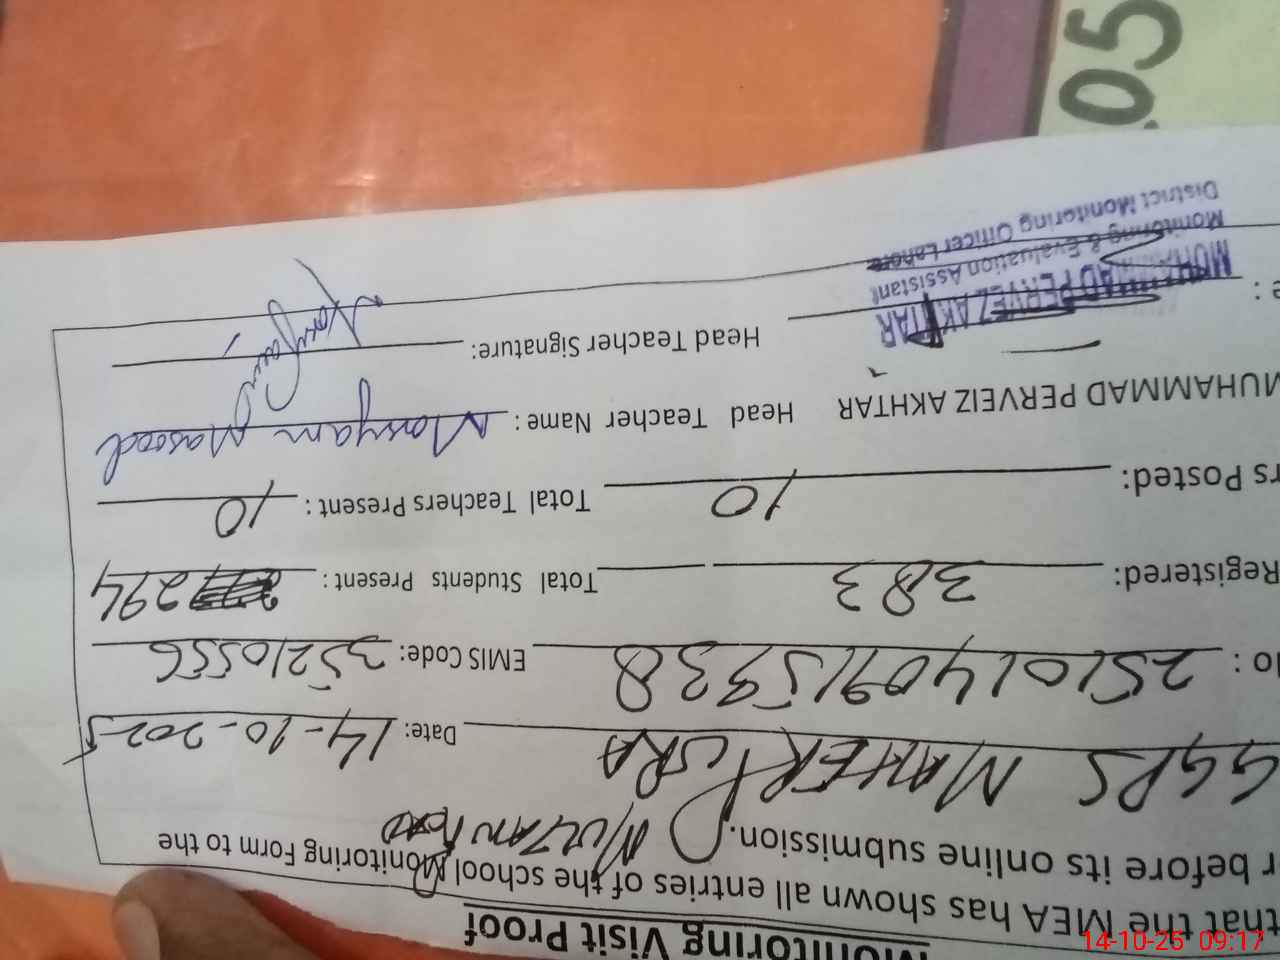 Monitoring Visit Proof
that the MEA has shown all entries of the school Monitoring Form to the
r before its online submission.
MULTAN ROAD
GGPS MAHERPURA Date: 14-10-2025
lo : 2510140915938 EMIS Code: 35210556
Registered: 383 Total Students Present : 294
rs Posted: 10 Total Teachers Present : 10
MUHAMMAD PERVEIZ AKHTAR Head Teacher Name : Maryam Masood
e : Head Teacher Signature:
MUHAMMAD PERVEZ AKHTAR
Monitoring & Evaluation Assistant
District Monitoring Officer Lahore
.05
14-10-25 09:17